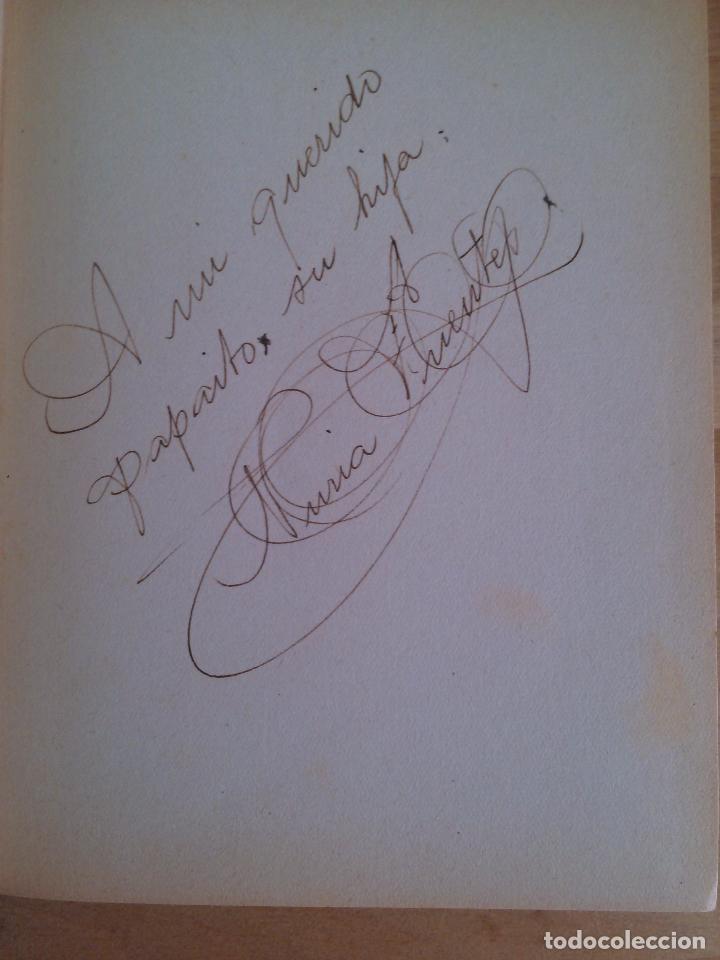 A mi querido
papaito. su hija:
Nuria Fuentes
todocoleccion